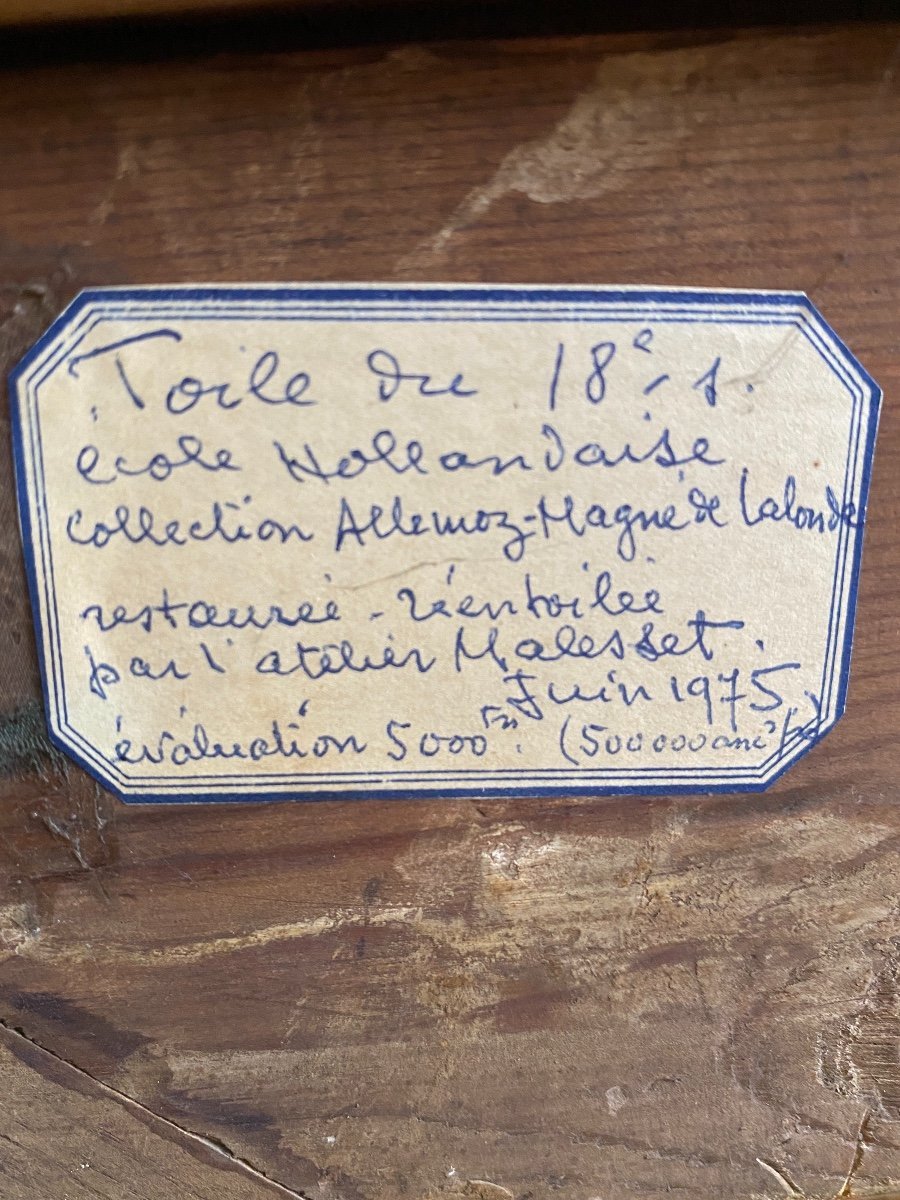 Toile du 18e s.
école Hollandaise
Collection Allemoz-Magné de Lalonde
restaurée - réentoilée
par l'atelier Malesset.
Juin 1975
évaluation 5000 Frs. (500 000 anc